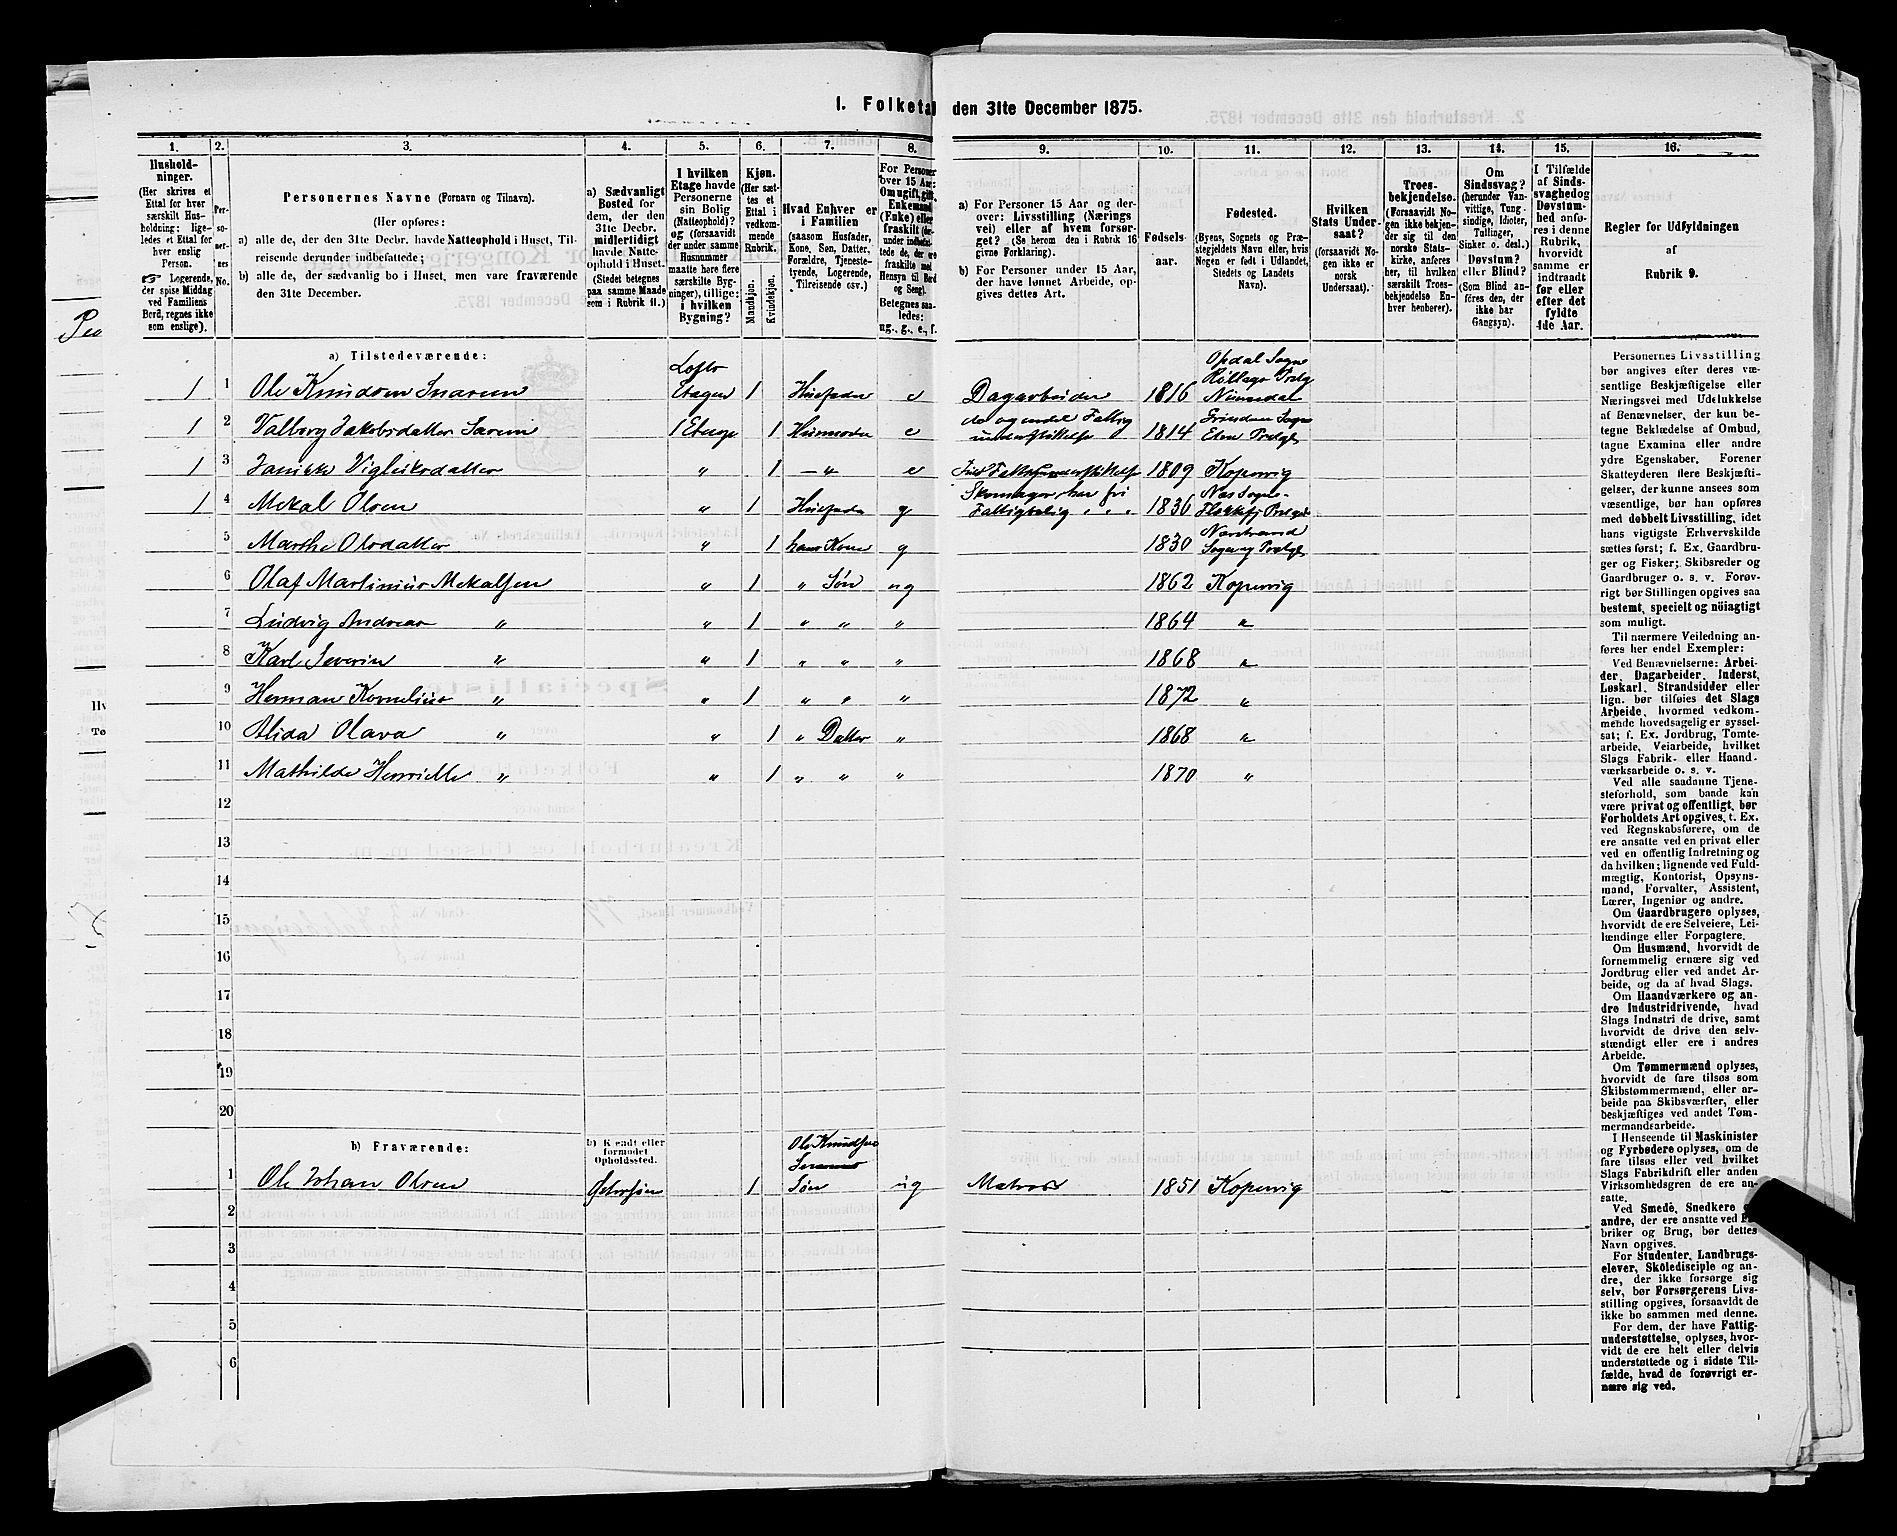 1. Folketal den 31te December 1875.
1. 2. 3. 4. 5. 6. 7. 8. 9. 10. 11. 12. 13. 14. 15. 16.
Husholdninger. (Her skrives et Ettal for hver særskilt Husholdning; ligeledes et Ettal for hver enslig Person. Logerende, der spise Middag ved Familiens Bord, regnes ikke som enslige).
Personernes No.
Personernes Navne (Fornavn og Tilnavn).
(Her opføres:
a) alle de, der den 31te Decbr. havde Natteophold i Huset, Tilreisende derunder indbefattede;
b) alle de, der sædvanlig bo i Huset, men vare fraværende den 31te December.
a) Sædvanligt Bosted for dem, der den 31te Decbr. midlertidigt havde Natteophold i Huset. (Stedet betegnes paa samme Maade som i Rubrik 11.)
I hvilken Etage havde Personerne sin Bolig (Natteophold)? og (forsaavidt der under samme Husnummer maatte høre flere særskilte Bygninger), tillige: i hvilken Bygning?
Kjøn. (Her sættes et Ettal i vedkommende Rubrik.
Mandkjøn. Kvindekjøn.
Hvad Enhver er i Familien (saasom Husfader, Kone, Søn, Datter, Forældre, Tjenestetyende, Logerende, Tilreisende osv.)
For Personer over 15 Aar: Om ugift, gift, Enkemand (Enke) eller fraskilt
Betegnes saaledes: ug., g., e., f.
a) For Personer 15 Aar og derover: Livsstilling (Nærings vei) eller af hvem forsørget? (Se herom den i Rubrik 16 givne Forklaring).
b) For Personer under 15 Aar, der have lønnet Arbeide, opgives dettes Art.
Fødselsaar.
Fødested. (Byens, Sognets og Præstegjeldets Navn eller, hvis Nogen er født i Udlandet, Stedets og Landets Navn).
Hvilken Stats Undersaat? (forsaavidt Nogen ikke er norsk Undersaat).
Troesbekjendelse. (Forsaavidt Nogen ikke bekjender sig til den norske Statskirke, anføres her, til hvilken særskilt Troesbekjendelse Enhver henhører).
Om Sindssvag? (herunder Vanvittige, Tungsindige, Idioter, Tullinger, Sinker o. desl.) Døvstum? eller Blind? (Som Blind anføres den, der ikke har Gangsyn).
I Tilfælde af Sindssvaghed og Døvstumhed anføres i denne Rubrik, hvorvidt samme er indtraadt før eller efter det fyldte 4de Aar.
Regler for Udfyldningen af Rubrik 9.
a) Tilstedeværende:
1 1 Ole Knudsen Snarem Lofts Etagen 1 Husfader e Dagarbeider 1816 Opdal Sogn Rollags Prælg Numedal
1 2 Valborg Jakobsdatter Sarem 1 Etage 1 Husmoder e 1814
1 3 Vigleiksdatter " 1 — " e 1809 Kopervig
1 4 Mekal Olsen " 1 Husfader g Skomager har fri Fattigbolig 1836
5 Marthe Olsdatter " 1 hans Kone g 1830
6 Olaf Martinius Mekalsen " 1 " Søn ug 1862 Kopervig
7 Ludvig Andreas " " 1 " " " 1864 "
8 Karl Severin " " 1 " " " 1868 "
9 Herman Kornelius " " 1 " " " 1872 "
10 Alida Olava " " 1 " Datter " 1868 "
11 Mathilde Henriette " " 1 " " " 1870 "
12
13
14
15
16
17
18
19
20
b) Fraværende:
b) Kjendt eller formodet Opholdssted.
1 Ole Johan Olsen Østersøen 1 Ole Knudsens Søn ug Matros 1851 Kopervig
2
3
4
5
6
Personernes Livsstilling
bør angives efter deres væsentlige Beskjæftigelse eller
Næringsvei med Udelukkelse
af Benævnelser, der kun betegne Beklædelse af Ombud,
tagne Examina eller andre
ydre Egenskaber. Forener
Skatteyderen flere Beskjæftigelser, der kunne ansees som
væsentlige, bør han opføres
med dobbelt Livsstilling, idet
hans vigtigste Erhvervskilde
sættes først; f. Ex. Gaardbruger og Fisker; Skibsreder og
Gaardbruger o. s. v. Forøvrigt bør Stillingen opgives saa
bestemt, specielt og nöiagtigt
som muligt.
Til nærmere Veiledning anføres her endel Exempler:
Ved Benævnelserne: Arbeider, Dagarbeider, Inderst,
Løskarl, Strandsidder eller
lign. bør tilføies det Slags
Arbeide, hvormed vedkommende hovedsagelig er sysselsat; f. Ex. Jordbrug, Tomtearbeide, Veiarbeide, hvilket
Slags Fabrik- eller Haandværksarbeide o. s. v.
Ved alle saadanne Tjenesteforhold, som baade kan
være privat og offentligt, bør
Forholdets Art opgives, t. Ex.
ved Regnskabsførere, om de
ere ansatte ved en privat eller
ved en offentlig Indretning og
da hvilken; lignende ved Fuldmægtig, Kontorist, Opsynsmand, Forvalter, Assistent,
Lærer, Ingeniør og andre.
Om Gaardbrugere oplyses,
hvorvidt de ere Selveiere, Leilændinge eller Forpagtere.
Om Husmænd, hvorvidt de
fornemmelig ernære sig ved
Jordbrug eller ved andet Arbeide, og da af hvad Slags.
Om Haandværkere og andre Industridrivende, hvad
Slags Industri de drive, samt
hvorvidt de drive den selvstændigt eller ere i andres
Arbeide.
Om Tømmermænd oplyses,
hvorvidt de fare tilsøs som
Skibstømmermænd, eller arbeide paa Skibsværfter, eller
beskjæftiges ved andet Tømmermandsarbeide.
I Henseende til Maskinister
og Fyrbødere oplyses, om de
fare tilsøs eller ved hvilket
Slags Fabrikdrift eller anden
Virksomhedsgren de ere ansatte.
Ved Smede, Snedkere og
andre, der ere ansatte ved Fabriker og Brug, bør dettes
Navn opgives.
For Studenter, Landbrugselever, Skoledisciple og andre, der ikke forsørge sig
selv, bør Forsørgerens Livsstilling opgives, forsaavidt de
ikke bo sammen med denne.
For dem, der have Fattigunderstøttelse, oplyses, hvorvidt de ere helt eller delvis
understøttede og i sidste Tilfælde, hvad de forøvrigt ernære sig ved.